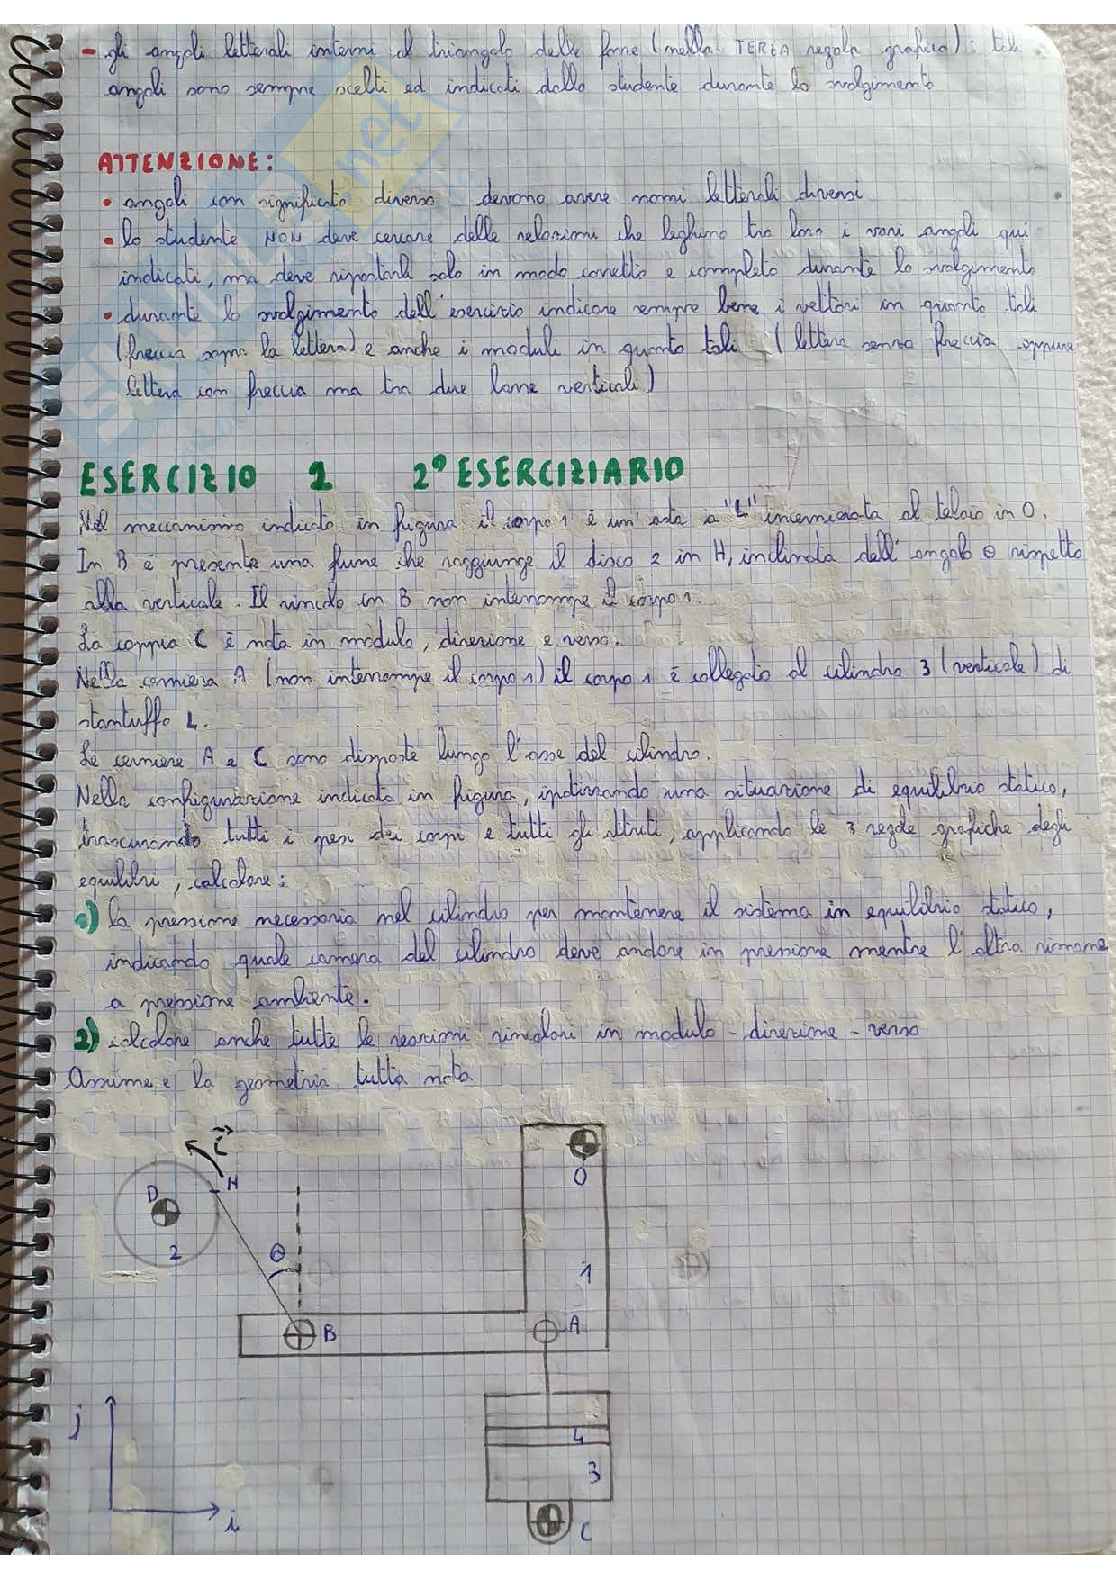 - gli angoli letterali interni al triangolo delle forze (nella TERZA regola grafica): tali
angoli sono sempre scelti ed indicati dallo studente durante lo svolgimento
ATTENZIONE:
• angoli con significato diverso devono avere nomi letterali diversi
• lo studente NON deve cercare delle relazioni che leghino tra loro i vari angoli qui
indicati, ma deve riportarli solo in modo corretto e completo durante lo svolgimento
• durante lo svolgimento dell'esercizio indicare sempre bene i vettori in quanto tali
(freccia sopra la lettera) e anche i moduli in quanto tali (lettera senza freccia oppure
lettera con freccia ma tra due barre verticali)
ESERCIZIO 1 2° ESERCIZIARIO
Nel meccanismo indicato in figura il corpo 1 è un'asta a "L" incernierata al telaio in O.
In B è presente una fune che raggiunge il disco 2 in H, inclinata dell'angolo θ rispetto
alla verticale. Il vincolo in B non interrompe il corpo 1.
La coppia C è nota in modulo, direzione e verso.
Nella cerniera A (non interrompe il corpo 1) il corpo 1 è collegato al cilindro 3 (verticale) di
stantuffo 4.
Le cerniere A e C sono disposte lungo l'asse del cilindro.
Nella configurazione indicata in figura, ipotizzando una situazione di equilibrio statico,
trascurando tutti i pesi dei corpi e tutti gli attriti, applicando le 3 regole grafiche degli
equilibri, calcolare:
1) la pressione necessaria nel cilindro per mantenere il sistema in equilibrio statico,
indicando quale camera del cilindro deve andare in pressione mentre l'altra rimane
a pressione ambiente.
2) calcolare anche tutte le reazioni vincolari in modulo - direzione - verso
Assumere la geometria tutta nota
C
H
D
O
2
θ
1
B
A
j
4
3
i
C